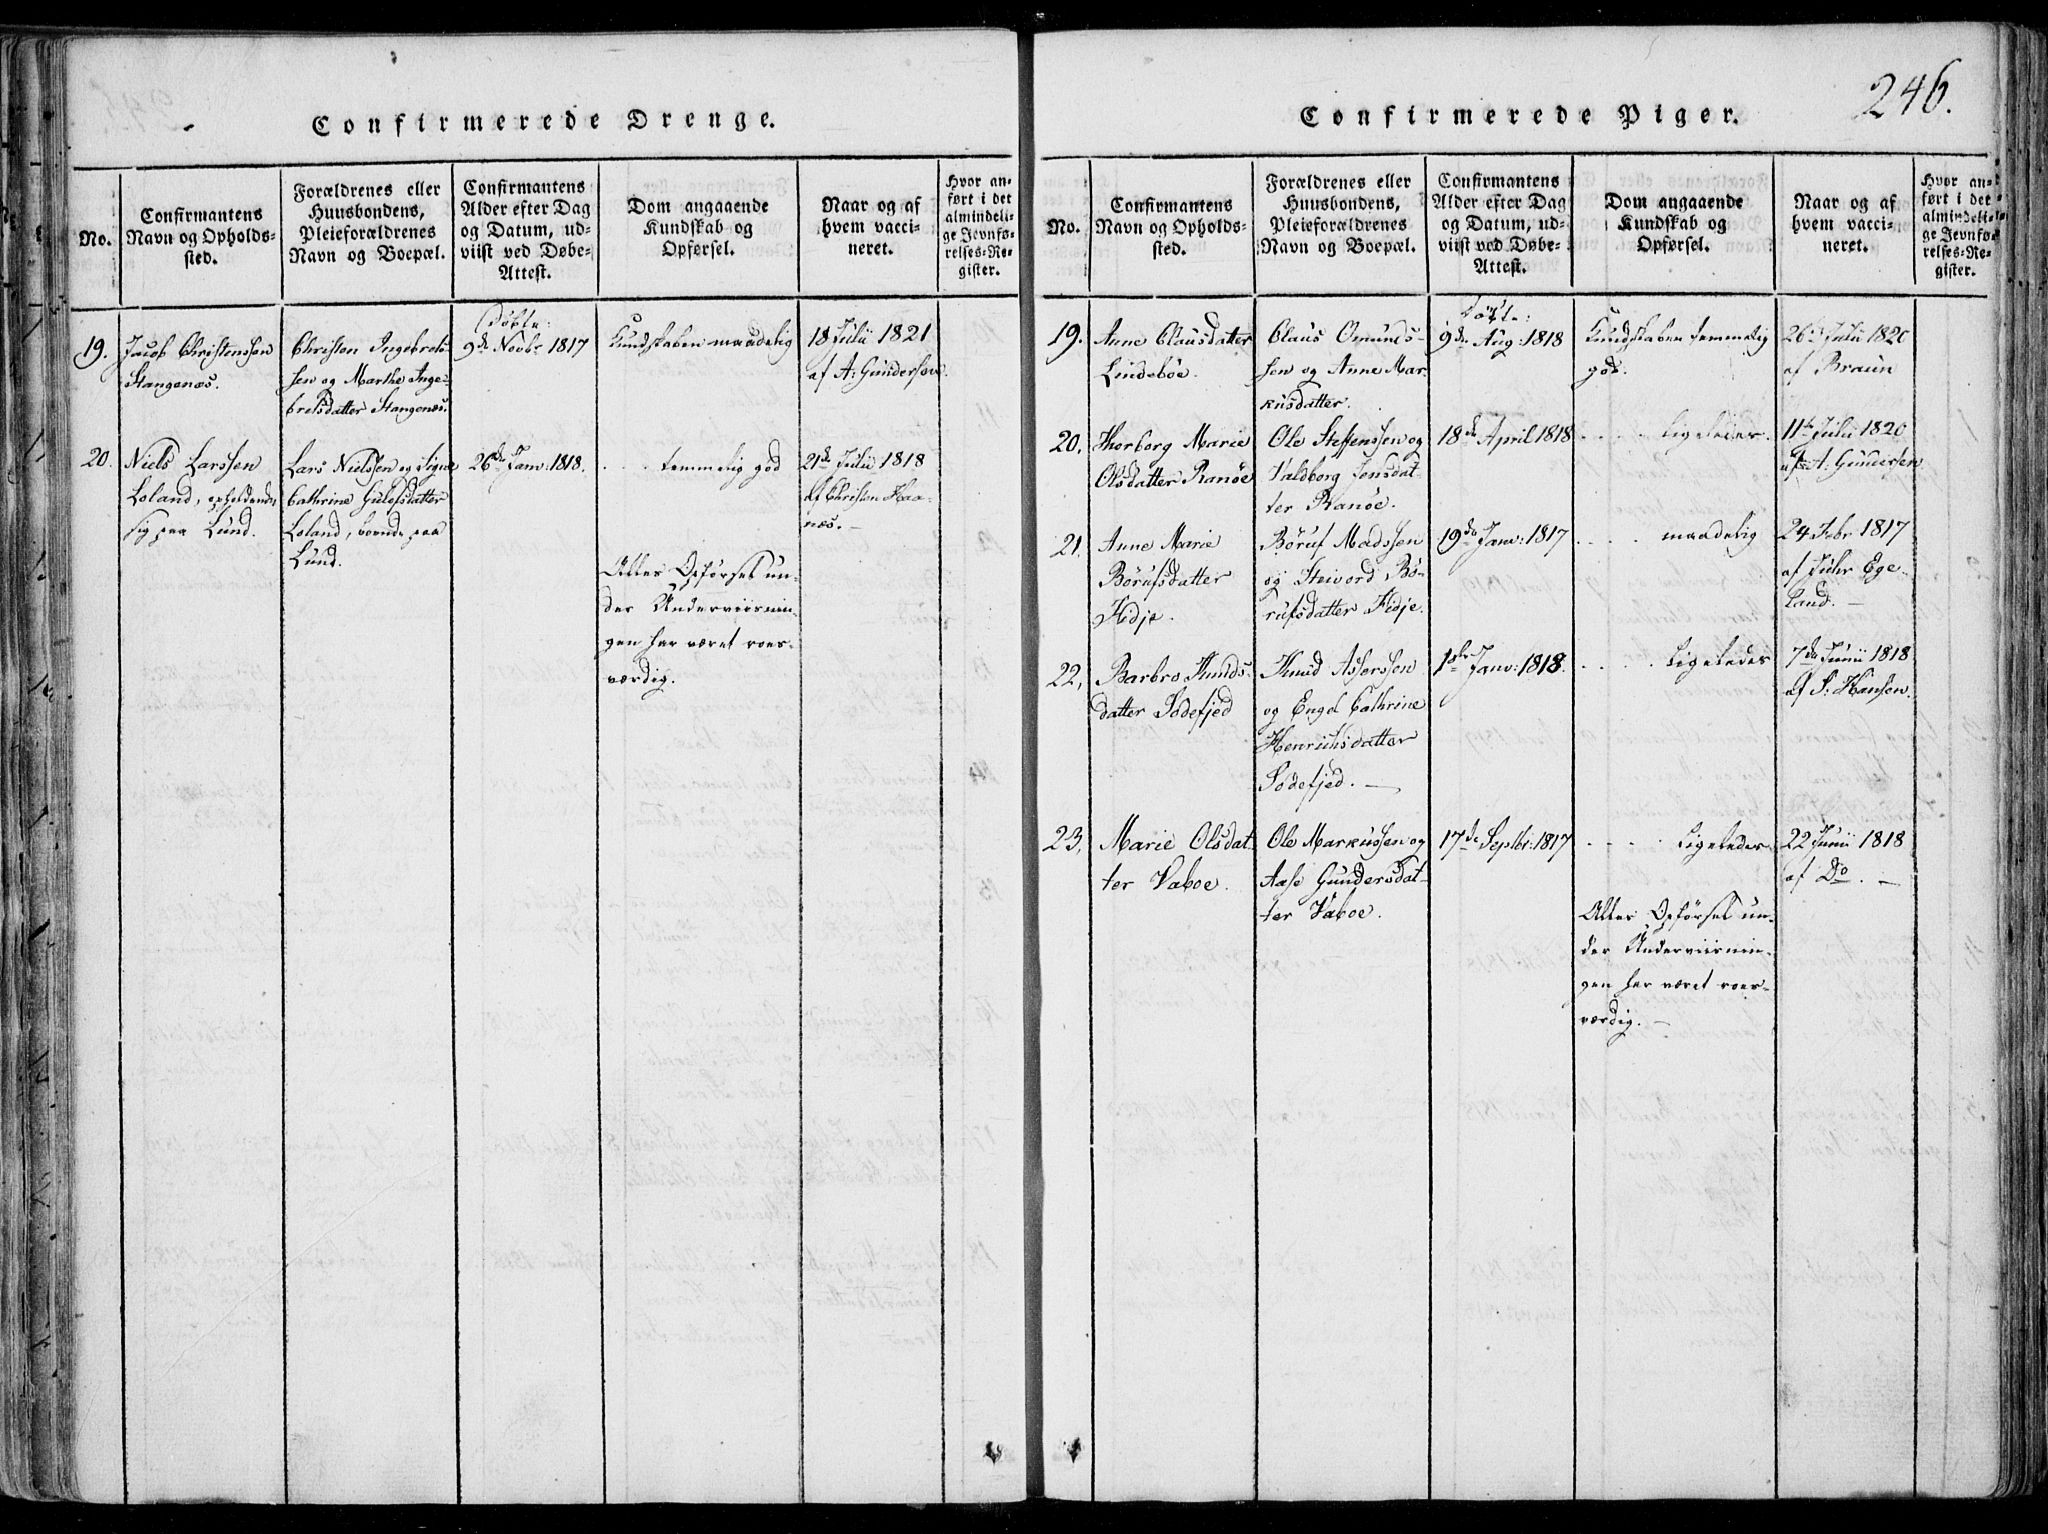 246.
Confirmerede Drenge.
No.
Confirmantens
Navn og Opholds-
sted.
Forældrenes eller
Huusbondens,
Pleieforældrenes
Navn og Boepæl.
Confirmantens
Alder efter Dag
og Datum, ud-
viist ved Døbe-
Attest.
Dom angaaende
Kundskab og
Opførsel.
Naar og af
hvem vacci-
neret.
Hvor an-
ført i det
almindeli-
ge Jevnfø-
relses-Re-
gister.
19.
Jacob Christenssen
Stangenæs.
Christen Ingebrets-
sen og Marthe Inge-
bretsdatter Stangenæs.
døbte:
9de Novbr 1817
Kundskaben maadelig
18 Julii 1821
af A: Gundersen
20.
Niels Larssen
Loland, opholdende
sig paa Lund.
Lars Nielssen og Signe
Cathrine Gulefsdatter
Loland, boende paa
Lund.
26de Janv: 1818.
temmelig god
21de Julii 1818
af Christen Haa-
næs. —
Alles Opførsel un-
der Underviisnin-
gen har været roes-
værdig.
Confirmerede Piger.
No.
Confirmantens
Navn og Opholds-
sted.
Forældrenes eller
Huusbondens,
Pleieforældrenes
Navn og Boepæl.
Confirmantens
Alder efter Dag
og Datum, ud-
viist ved Døbe-
Attest.
Dom angaaende
Kundskab og
Opførsel.
Naar og af
hvem vacci-
neret.
Hvor an-
ført i det
almindeli-
ge Jevnfø-
relses-Re-
gister.
19.
Anne Clausdatter
Lindebøe.
Claus Omunds-
sen og Anne Mar-
kusdatter.
døbte:
9de Aug: 1818
Kundskaben temmelig
god.
26de Julii 1820
af Braun
20.
Thorborg Marie
Olsdatter Ranøe
Ole Steffenssen og
Valdborg Jensdat-
ter Ranøe.
18de April 1818
ligeledes.
11te Julii 1820
af A: Gundersen
21.
Anne Marie
Børufsdatter
Fidje.
Børuf Madssen
og Steivord Bø-
rufsdatter Fidje.
19de Janv: 1817
maadelig
24 Febr 1817
af Juhr Ege-
land. —
22,
Barbro Knuds-
datter Sodefjed
Knud Asserssen
og Engel Cathrine
Henrichsdatter
Sodefjed. —
1ste Janv: 1818.
Ligeledes
7de Junii 1818
af S: Hansen.
23,
Marie Olsdat-
ter Vaboe.
Ole Markussen og
Aase Gundersdat-
ter Vaboe.
17de Septbr: 1817
Ligeledes
22 Junii 1818
af Do. —
Alles Opførsel un-
der Underviisnin-
gen har været roes-
værdig. —